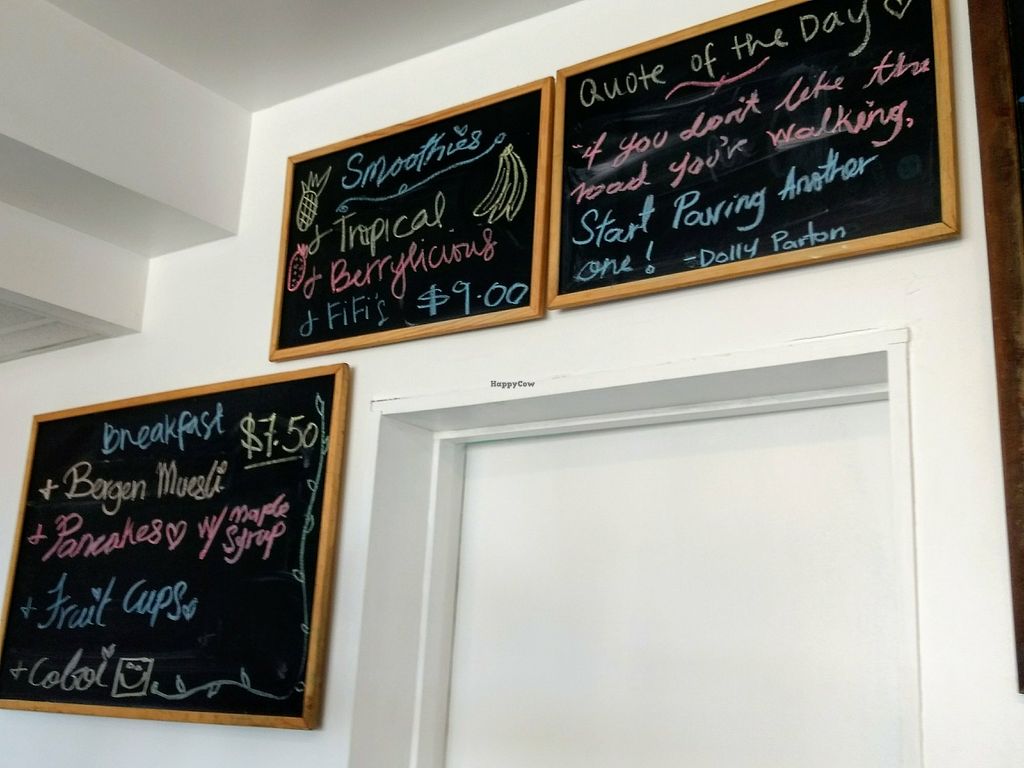 Smoothies
+ Tropical
+ Berrylicious
+ FiFi's $9.00
Quote of the Day
"if you don't like the
road you're walking,
Start Paving Another
one! -Dolly Parton
HappyCow
Breakfast $7.50
+ Bergen Muesli
+ Pancakes w/ maple
Syrup
+ Fruit Cups
+ Coboi